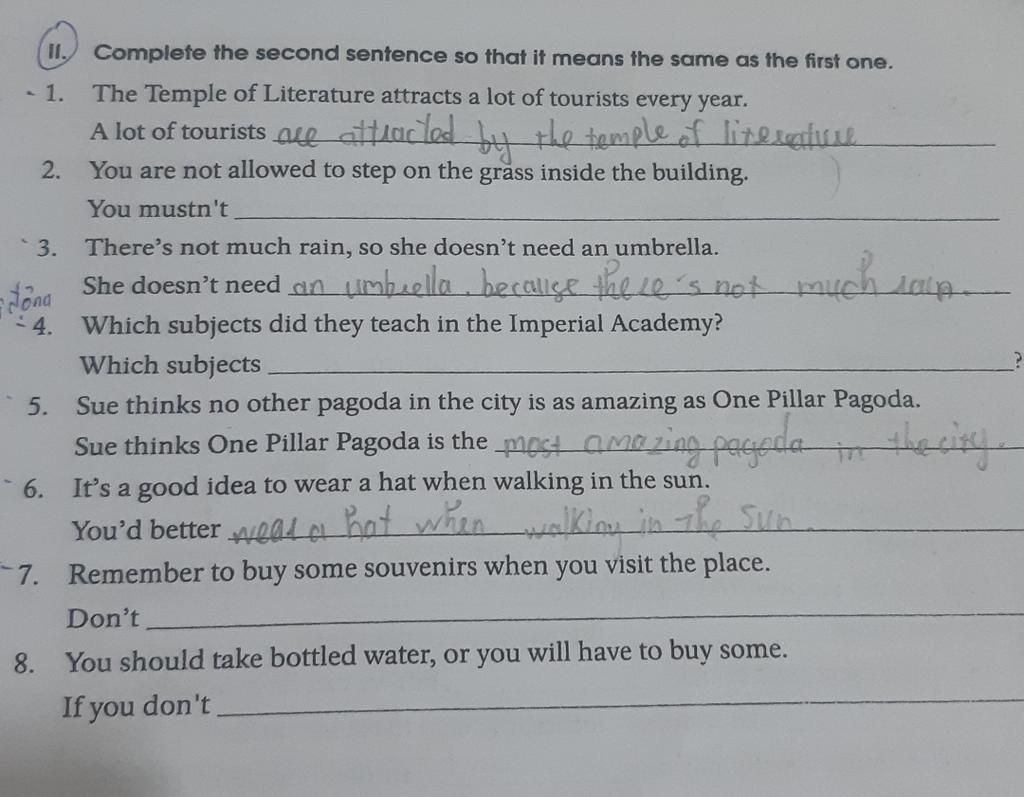 II. Complete the second sentence so that it means the same as the first one.
1. The Temple of Literature attracts a lot of tourists every year.
A lot of tourists are attracted by the temple of literature
2. You are not allowed to step on the grass inside the building.
You mustn't
3. There's not much rain, so she doesn't need an umbrella.
She doesn't need an umbrella, because there's not much rain.
4. Which subjects did they teach in the Imperial Academy?
Which subjects ?
5. Sue thinks no other pagoda in the city is as amazing as One Pillar Pagoda.
Sue thinks One Pillar Pagoda is the most amazing pagoda in the city.
6. It's a good idea to wear a hat when walking in the sun.
You'd better wear a hat when walking in the sun.
7. Remember to buy some souvenirs when you visit the place.
Don't
8. You should take bottled water, or you will have to buy some.
If you don't